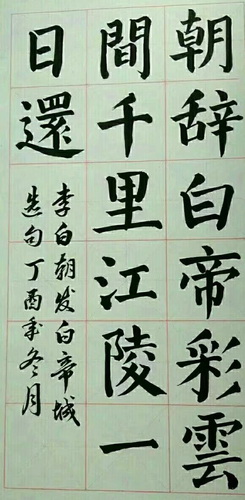 朝辞白帝彩雲
間千里江陵一
日還
李白朝发白帝城
选句丁酉年冬月